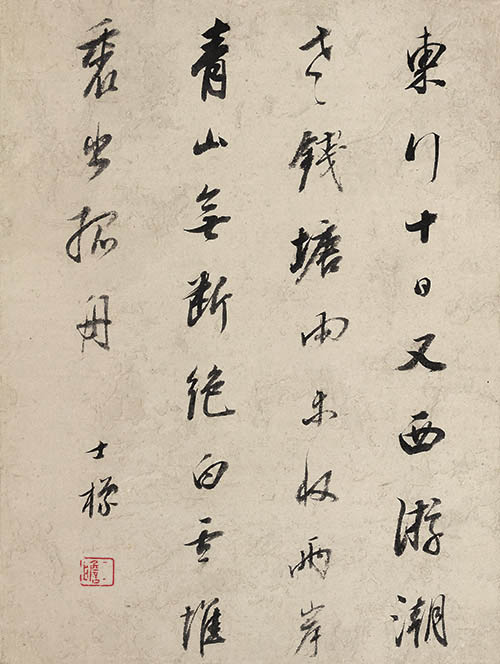 東行十日又西游潮
老錢塘雨未收兩岸
青山無斷絕白雲堆
裏出孤舟
士標
二瞻